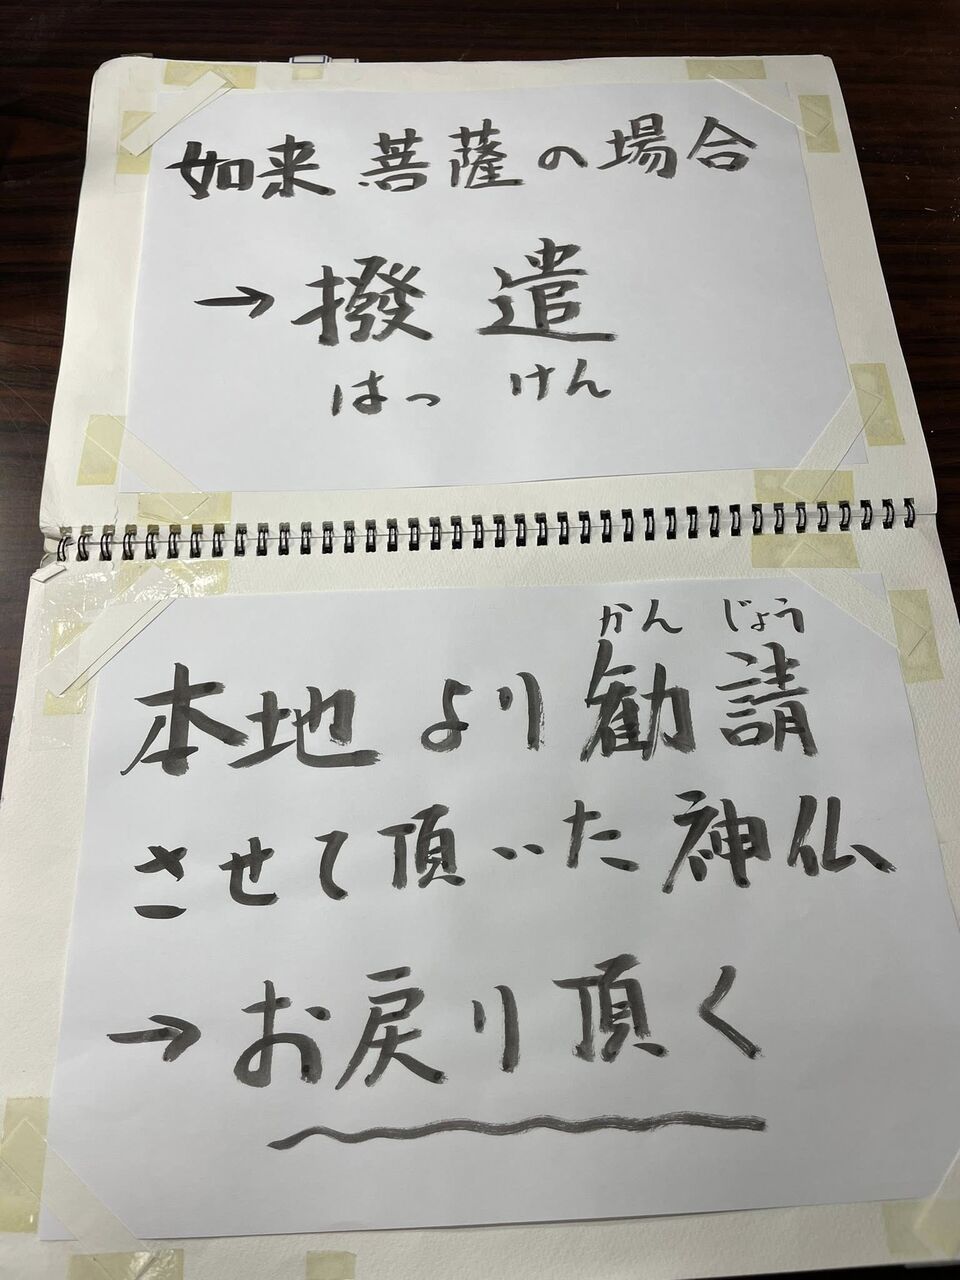 如来菩薩の場合
→撥遣
はっ けん
かん じょう
本地より勧請
させて頂いた神仏
→お戻り頂く